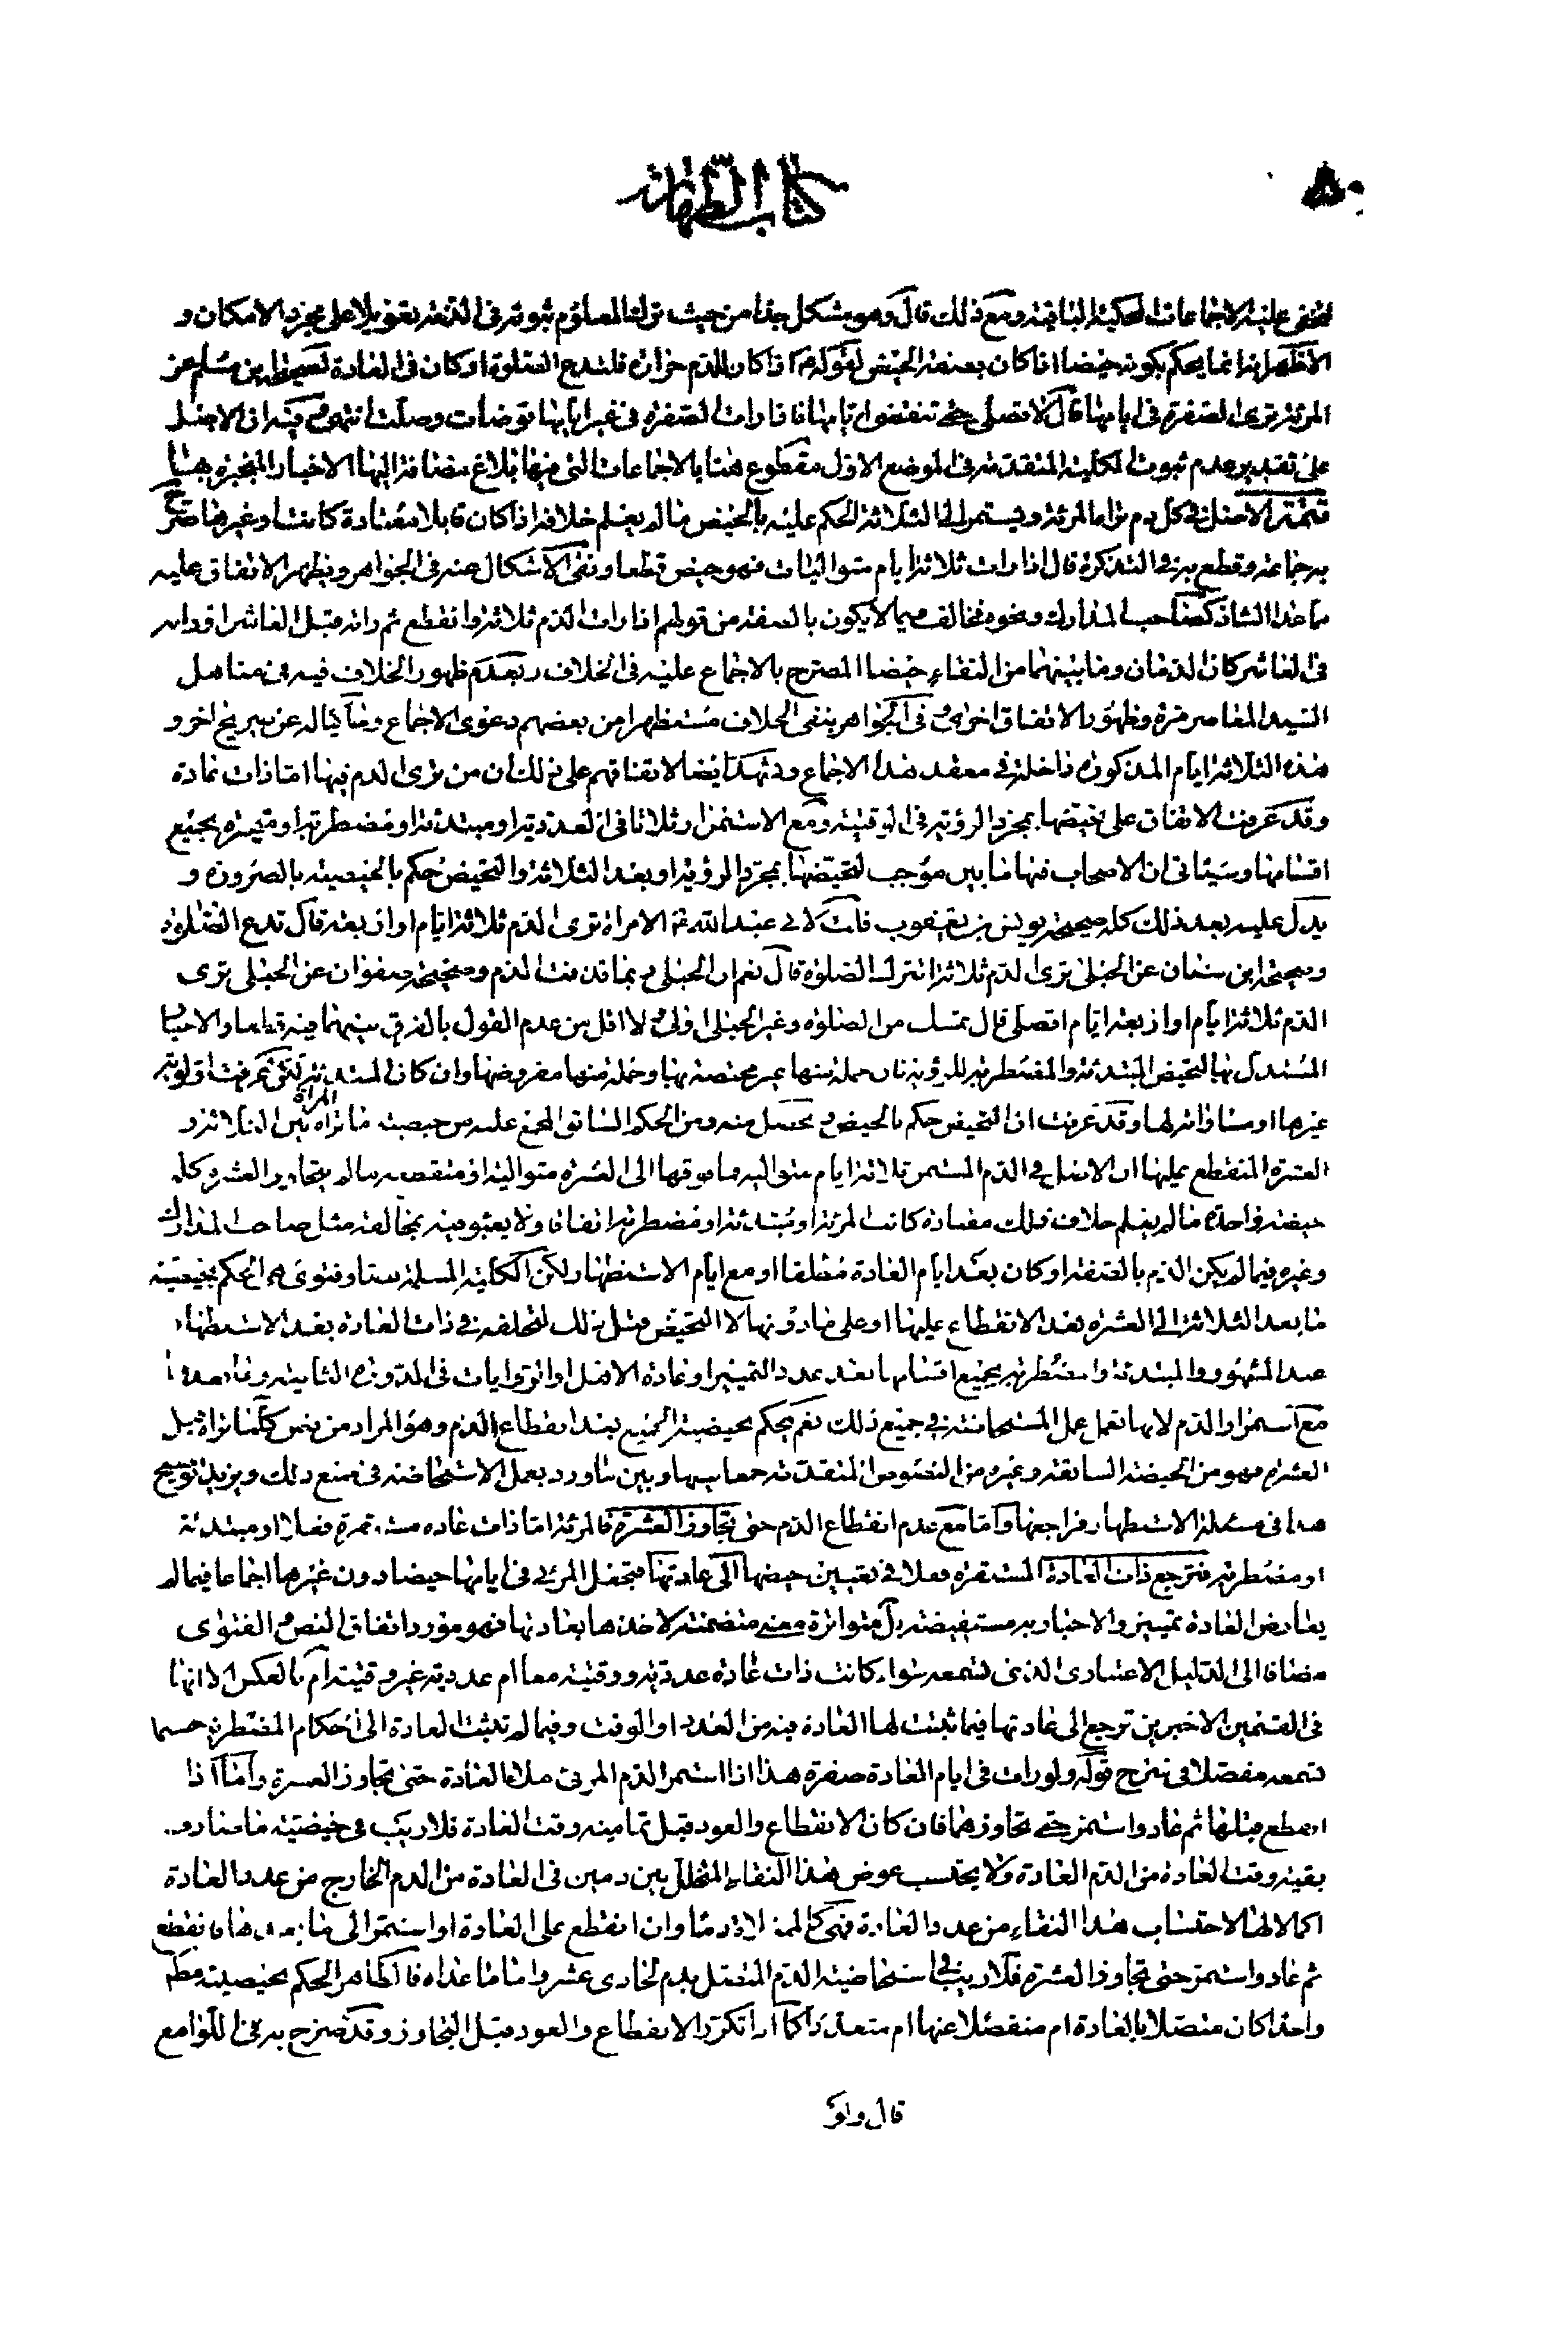 كتاب الطهارة
عليه الاجماعات المحكية الباقية ومع ذلك قال وهو مشكل جدا من حيث ترك المعلوم ثبوته في الذمة تعويلا على مجرد الامكان و
الاظهر انه انما يحكم بكونه حيضا اذا كان بصفة الحيض لقوله اذا كان للدم حرارة فلتدع الصلوة او كان في العادة لصحيحة بن مسلم عن
المرئة ترى الصفرة في ايامها قال لا تصلى حتى تنقضى ايامها فاذا رات الصفرة في غير ايامها توضات وصلت انتهى وفيه ان الاصل
على تقدير عدم ثبوت الكلية المتقدمة في الموضع الاول مقطوع هنا بالاجماعات التي فيها بلاغ مضافة اليها الاخبار المنجبرة بها
ثم ان الاصل في كل دم تراه المرئة ويستمر الى الثلاثة الحكم عليه بالحيض ما لم يعلم خلافه اذا كان قابلا معتادة كانت او غيرها صرح
به جماعة وقطع به في التذكرة قال اذا رات ثلاثة ايام متواليات فهو حيض قطعا ونفى الاشكال عنه في الجواهر ويظهر الاتفاق عليه
ما عدا الشاذ كصاحب المدارك ونحوه مخالف فيما لا يكون بالصفة من قولهم اذا رات الدم ثلاثة وانقطع ثم راته قبل العاشر او راته
في العاشر كان الدمان وما بينهما من النقاء حيضا المصرح بالاجماع عليه في الخلاف وبعدم ظهور الخلاف فيه في مناهل
السيد المعاصر مرة وظهور الاتفاق اخرى وفي الجواهر بنفى الخلاف مستظهرا من بعضهم دعوى الاجماع اخر و
هذه الثلاثة ايام المذكورة داخلة في معقد هذا الاجماع ويشهد ايضا لاتفاقهم على ذلك ان من ترى الدم فيها اما ذات عادة
وقد عرفت الاتفاق على تحيضها بمجرد الرؤية في الوقتية ومع الاستمرار ثلاثا في العددية او مبتدئة او مضطربة او متحيرة بجميع
اقسامها وسياتى ان الاصحاب فيها ما بين موجب لتحيضها بمجرد الرؤية او بعد الثلاثة والتحيض حكم بالحيضية بالضرورة و
يدل عليه بعد ذلك كله صحيحة يونس بن يعقوب قلت لابي عبد الله ع الامراة ترى الدم ثلاثة ايام او اربعة قال تدع الصلوة
وصحيحة ابن سنان عن الحبلى ترى الدم ثلاثا اتترك الصلوة قال نعم ان الحبلى ربما قذفت الدم وصحيحة صفوان عن الحبلى ترى
الدم ثلاثة ايام او اربعة ايام اتصلى قال تمسك من الصلوة وغير الحبلى اولى لا اقل من عدم القول بالفرق بينهما فيه قطعا والاخبار
المستدل بها لتحيض المبتدئة والمضطربة للرؤية فان جملة منها غير مختصة بها وجملة منها مفروضها وان كان المبتدئة لكن عرفت اولوية
غيرها او مساواته لها وقد عرفت ان التحيض حكم بالحيض فيحصل منه ومن الحكم السابق المجمع عليه من حيضية ما تراه المراة بين الثلاثة و
العشرة المنقطع عليها ان الاصل في الدم المستمر ثلاثة ايام متوالية فما فوقها الى العشرة متوالية او منفصلة ما لم يتجاوز العشرة كله
حيضة واحدة ما لم يعلم خلاف ذلك معتادة كانت المرئة او مبتدئة او مضطربة اتفاقا ولا يعبؤ فيه بمخالفة مثل صاحب المدارك
وغيره فيما لم يكن الدم بالصفة او كان بعد ايام العادة مطلقا او مع ايام الاستظهار ولكن الكلية المسلمة وفتوى هو الحكم بحيضية
ما بعد الثلاثة الى العشرة بعد الانقطاع عليها او على ما دونها لا التحيض قبل ذلك لتخلفه في ذات العادة بعد الاستظهار
عند المشهور والمبتدئة والمضطربة بجميع اقسامها بعد عدد التمييز او عادة الاهل او الروايات في الدورة الثانية وما بعدها
مع استمرار الدم لانها تعمل عمل المستحاضة في جميع ذلك نعم يحكم بحيضية الجميع بعد انقطاع الدم وهو المراد من نص كلما تراه قبل
العشرة فهو من الحيضة السابقة وغيره من النصوص المتقدمة جمعا بينها وبين ما ورد بعمل الاستحاضة في جميع ذلك ويزيدك توضيح
هذا في مسئلة الاستظهار فراجعها واما مع عدم انقطاع الدم حتى تجاوز العشرة فالمرئة اما ذات عادة مستمرة فعلا او مبتدئة
او مضطربة فترجع ذات العادة المستقرة فعلا في تعيين حيضها الى عادتها فتجعل المرئي في ايامها حيضا دون غيرها اجماعا فيما لم
يعارض العادة تمييز والاخبار به مستفيضة بل متواترة معنى متضمنة لاخذها بعادتها فهو مورد اتفاق النص والفتوى
مضافا الى الدليل الاعتبارى الذى تسمعه سواء كانت ذات عادة عددية ووقتية معا ام عددية غير وقتية ام بالعكس الا انها
في القسمين الاخيرين ترجع الى عادتها فيما ثبتت لها العادة فيه من العدد او الوقت وفيما لم تثبت العادة الى احكام المضطربة حسبما
تسمعه مفصلا في شرح قوله ولو رات في ايام العادة صفرة هذا اذا استمر الدم المرئ ملاء العادة حتى تجاوز العشرة واما اذا
انقطع قبلها ثم عاد واستمر حتى تجاوزها فان كان الانقطاع والعود قبل تمامية وقت العادة فلا ريب في حيضية ما صادف
بقية وقت العادة من الدم العادة ولا يحتسب عوض هذا النقاء المتخلل بين دمين في العادة من الدم الخارج من عدد العادة
اكمالا لها لاحتساب هذا النقاء من عدد العادة وان انقطع على العادة او استمر الى ما بعدها فانقطع
ثم عاد واستمر حتى تجاوز العشرة فلا ريب في استحاضية الدم المتصل بدم الحادى عشر واما ما عداه فالظاهر الحكم بحيضيته مطلقا
واحدا كان متصلا بالعادة ام منفصلا عنها ام متعددا كما اذا تكرر الانقطاع والعود قبل التجاوز وقد صرح به في اللوامع
قال ولو